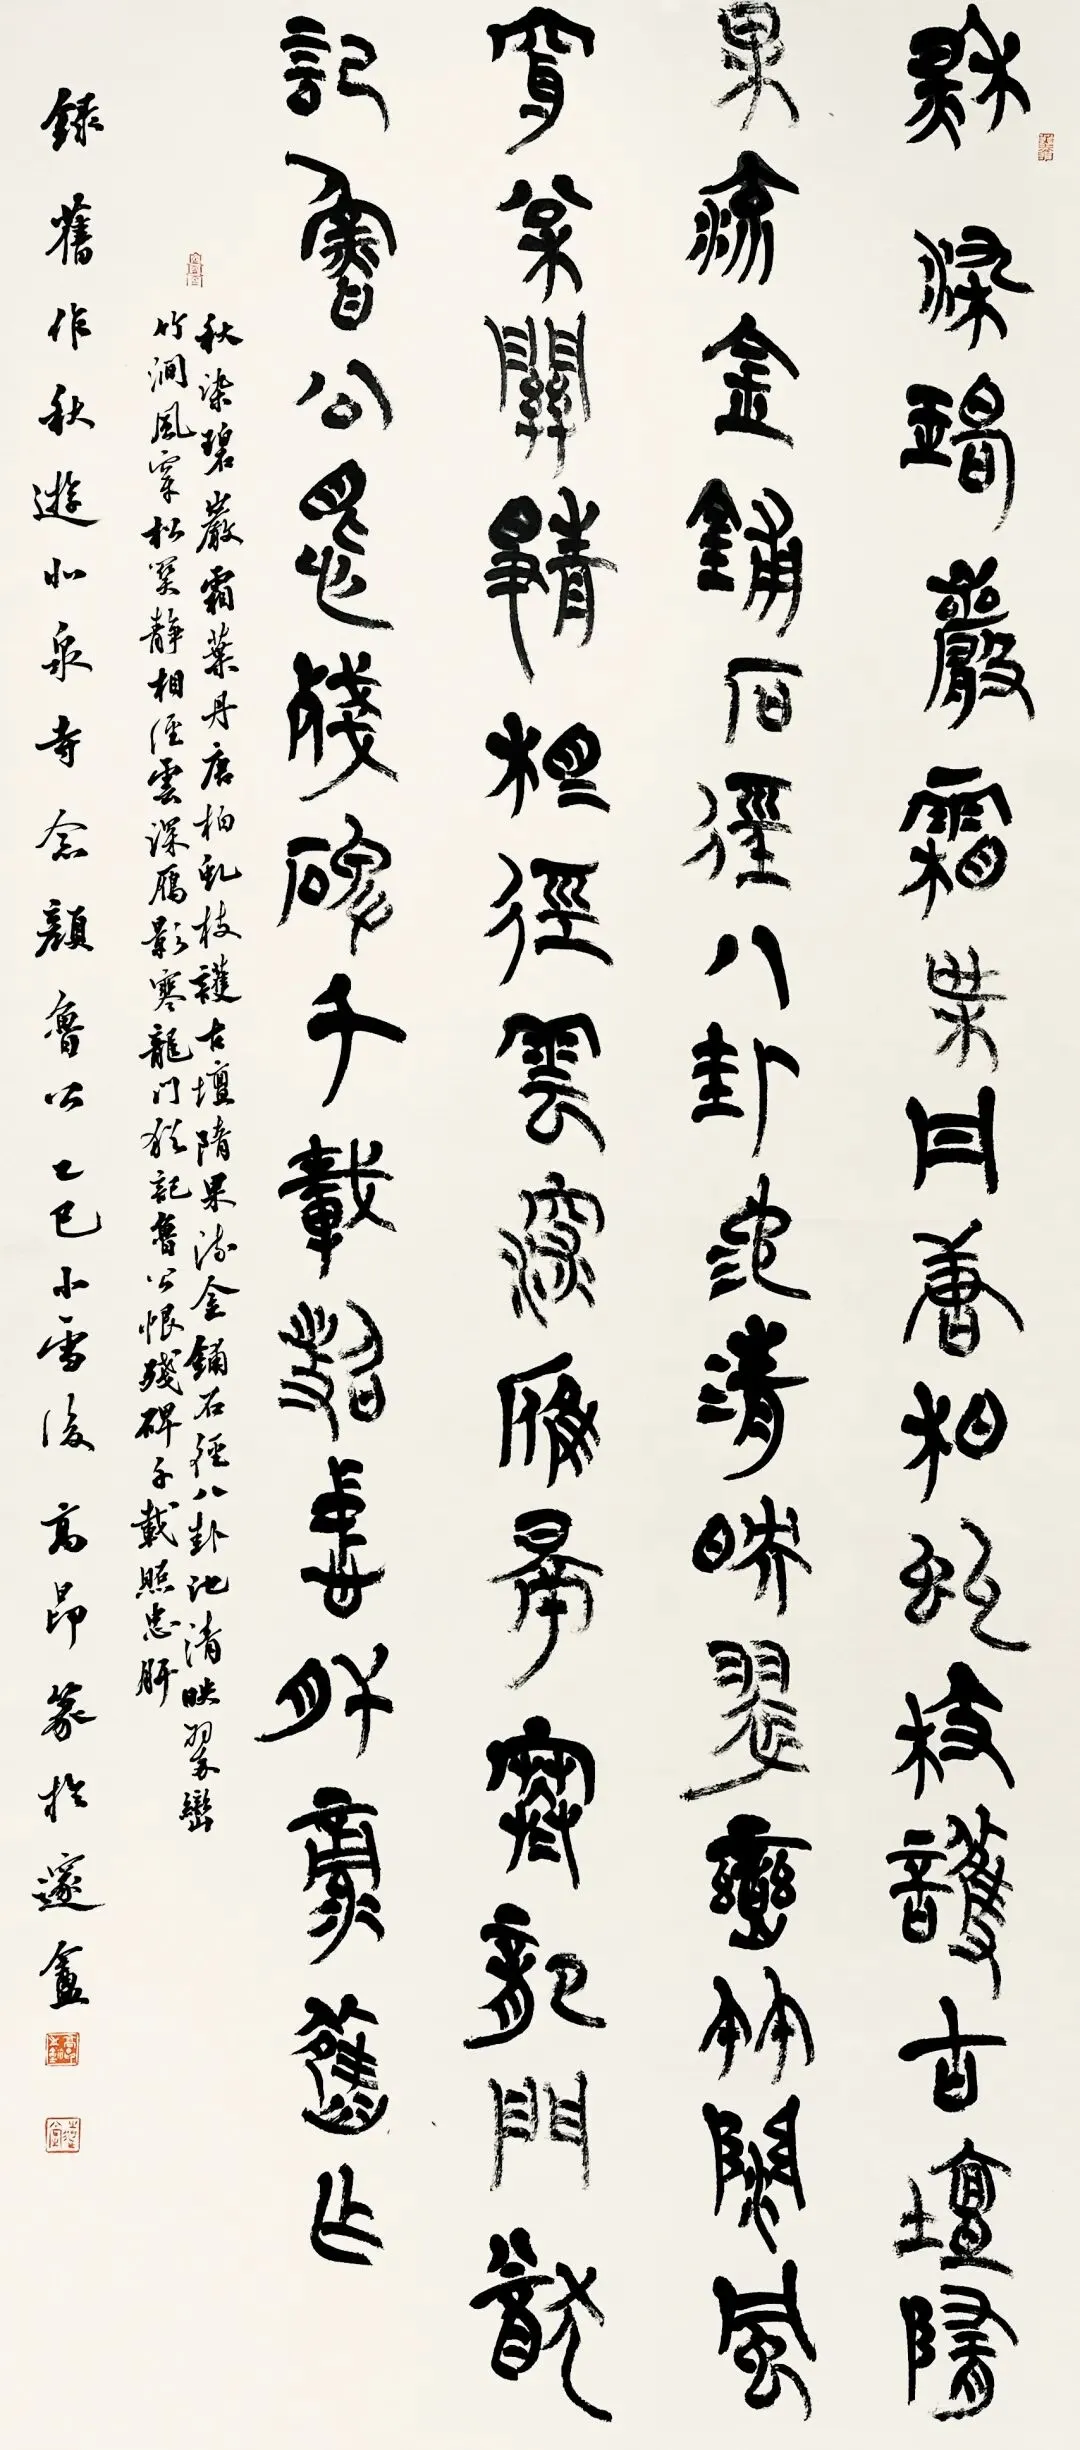 秋染碧巖霜葉丹唐柏虬枝護古壇隋
果流金鋪石徑八卦池清映翠巒竹澗風
穿松關靜相徑雲深雁影寒龍門猶
記魯公恨殘碑千載照忠肝舊作
秋染碧巖霜葉丹唐柏虬枝護古壇隋果流金鋪石徑八卦池清映翠巒
竹澗風穿松關靜相徑雲深雁影寒龍門猶記魯公恨殘碑千載照忠肝
錄舊作秋遊北泉寺念顏魯公乙巳小雪後高昂篆於邃盦